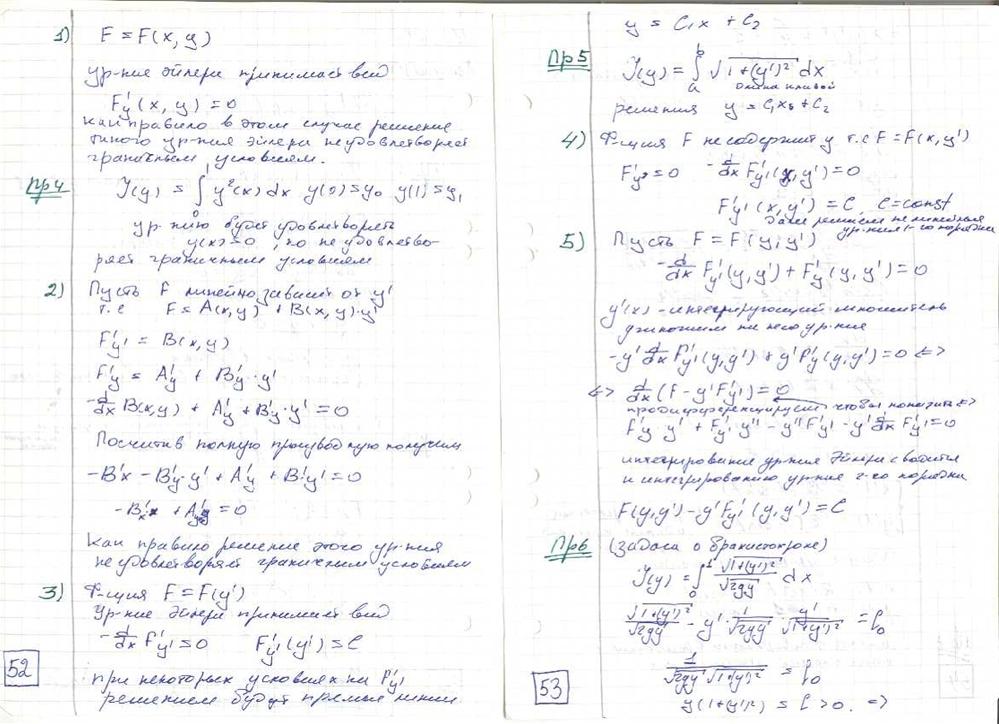 1) F = F(x, y)
ур-ние Эйлера принимает вид
F'y (x, y) = 0
как правило в этом случае решение
такого ур-ния Эйлера не удовлетворяет
граничным условиям.
Пр4 J(y) = ∫₀¹ y²(x) dx y(0) = y₀ y(1) = y₁
ур-нию будет удовлетворять
y(x) = 0, но не удовлетво-
ряет граничным условиям
2) Пусть F линейно зависит от y'
т.е F = A(x, y) + B(x, y)·y'
F'y' = B(x, y)
F'y = A'y + B'y·y'
-d/dx B(x, y) + A'y + B'y·y' = 0
Посчитав полную производную получим
-B'x - B'y·y' + A'y + B'y' = 0
-B'x + A'y = 0
Как правило решение этого ур-ния
не удовлетворяет граничным условиям
3) Ф-ция F = F(y')
Ур-ние Эйлера принимает вид
-d/dx F'y' = 0 F'y' (y') = C
при некоторых условиях на F'y'
решением будут прямые линии
52
y = C₁x + C₂
Пр5 J(y) = ∫ₐᵇ √1+(y')² dx
длина кривой
решения y = C₁x + C₂
4) Ф-ция F не содержит y т.е F = F(x, y')
F'y = 0 -d/dx F'y' (x, y') = 0
F'y' (x, y') = C, C = const
ур-ния 1-го порядка
5) Пусть F = F(y, y')
-d/dx F'y' (y, y') + F'y (y, y') = 0
y'(x) - интегрирующий множитель
умножим на него ур-ние
-y' d/dx F'y' (y, y') + y' F'y (y, y') = 0 <=>
<=> d/dx (F - y'F'y') = 0
продифференцируем, чтобы показать <=>
F'y·y' + F'y'·y'' - y''F'y' - y' d/dx F'y' = 0
интегрирование ур-ния Эйлера сводится
к интегрированию ур-ния 1-го порядка
F(y, y') - y'F'y' (y, y') = C
Пр6 (задача о брахистохроне)
J(y) = ∫₀¹ √1+(y')² / √2gy dx
√1+(y')² / √2gy - y' · 1/√2gy · y'/√1+(y')² = C₀
1 / √2gy √1+(y')² = C₀
y(1+(y')²) = C > 0. =>
53